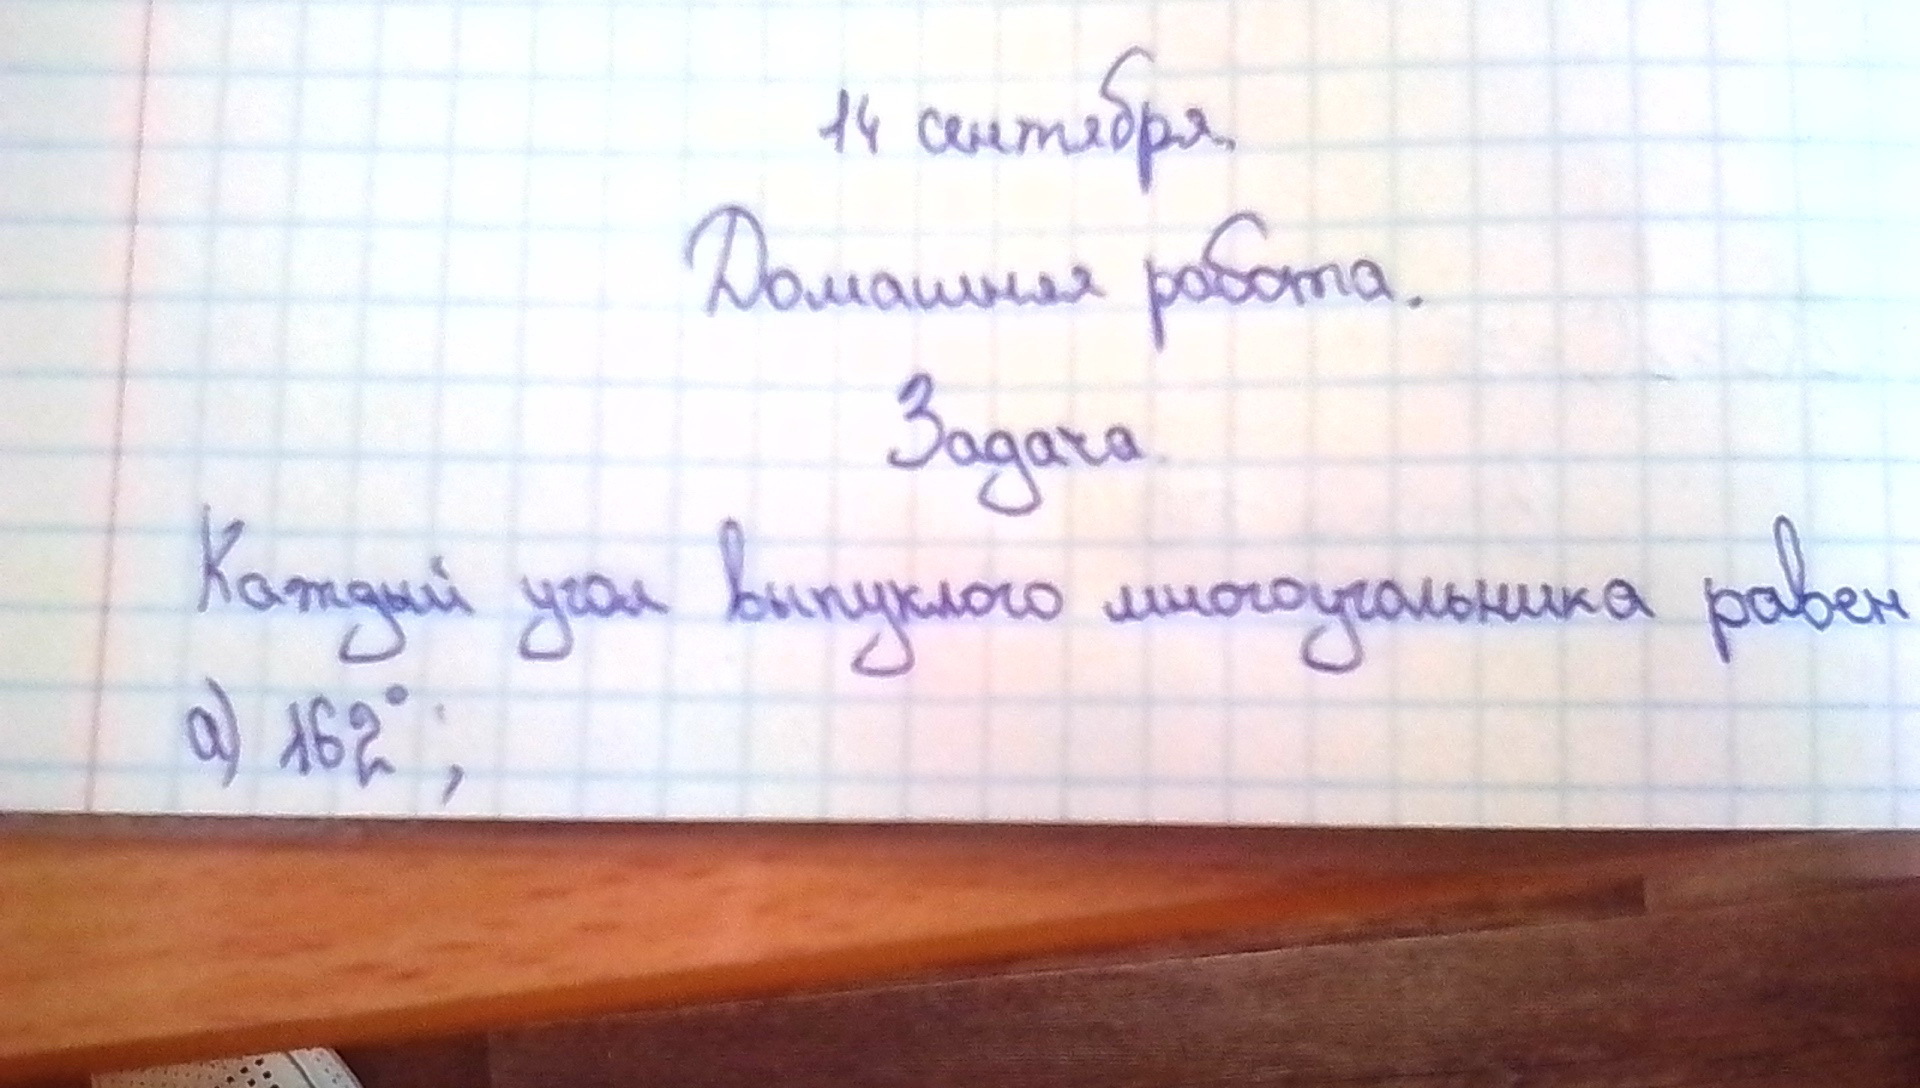 14 сентября.
Домашняя работа.
Задача
Каждый угол выпуклого многоугольника равен
а) 162°;